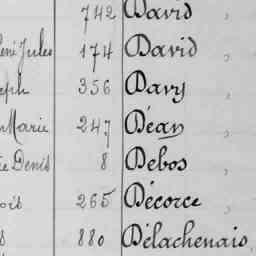 742 David ,
René Jules 174 David ,
eph 356 Davy ,
Marie 247 Déan ,
Denis 8 Debos ,
ois 265 Décorce ,
s 880 Délachenais,